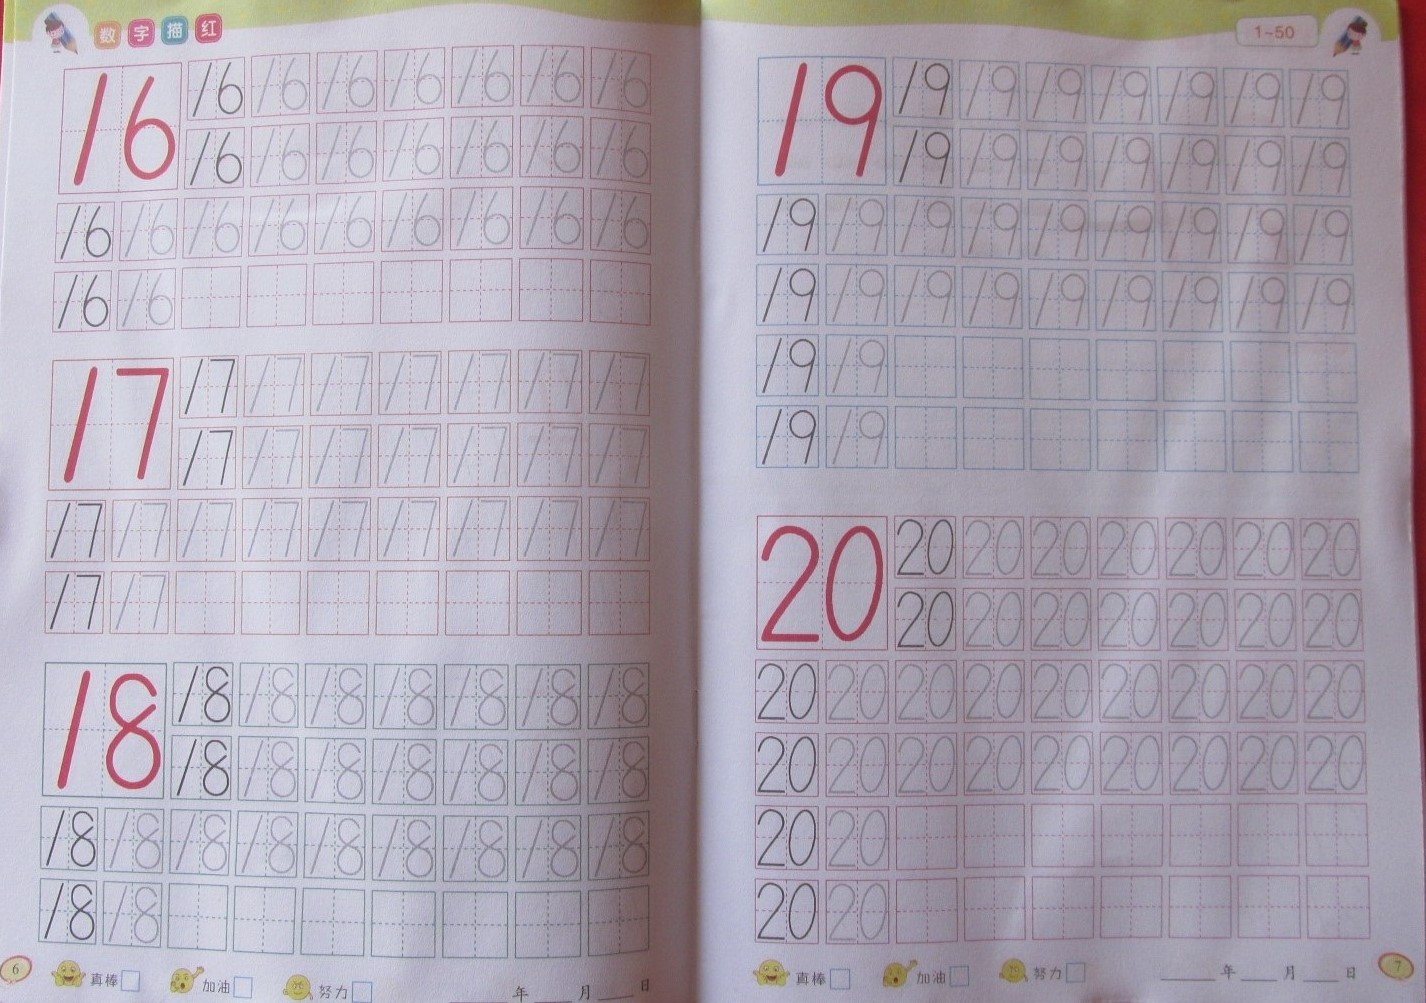 数字描红
16 16 16 16 16 16 16 16
16 16 16 16 16 16 16
16 16 16 16 16 16 16 16 16
16 16
17 17 17 17 17 17 17 17
17 17 17 17 17 17 17
17 17 17 17 17 17 17 17 17
17 17
18 18 18 18 18 18 18 18
18 18 18 18 18 18 18
18 18 18 18 18 18 18 18 18
18 18
6 真棒 加油 努力 年 月 日
1~50
19 19 19 19 19 19 19 19
19 19 19 19 19 19 19
19 19 19 19 19 19 19 19 19
19 19 19 19 19 19 19 19 19
19 19
19 19
20 20 20 20 20 20 20 20
20 20 20 20 20 20 20
20 20 20 20 20 20 20 20 20
20 20 20 20 20 20 20 20 20
20 20
20 20
真棒 加油 努力 年 月 日 7